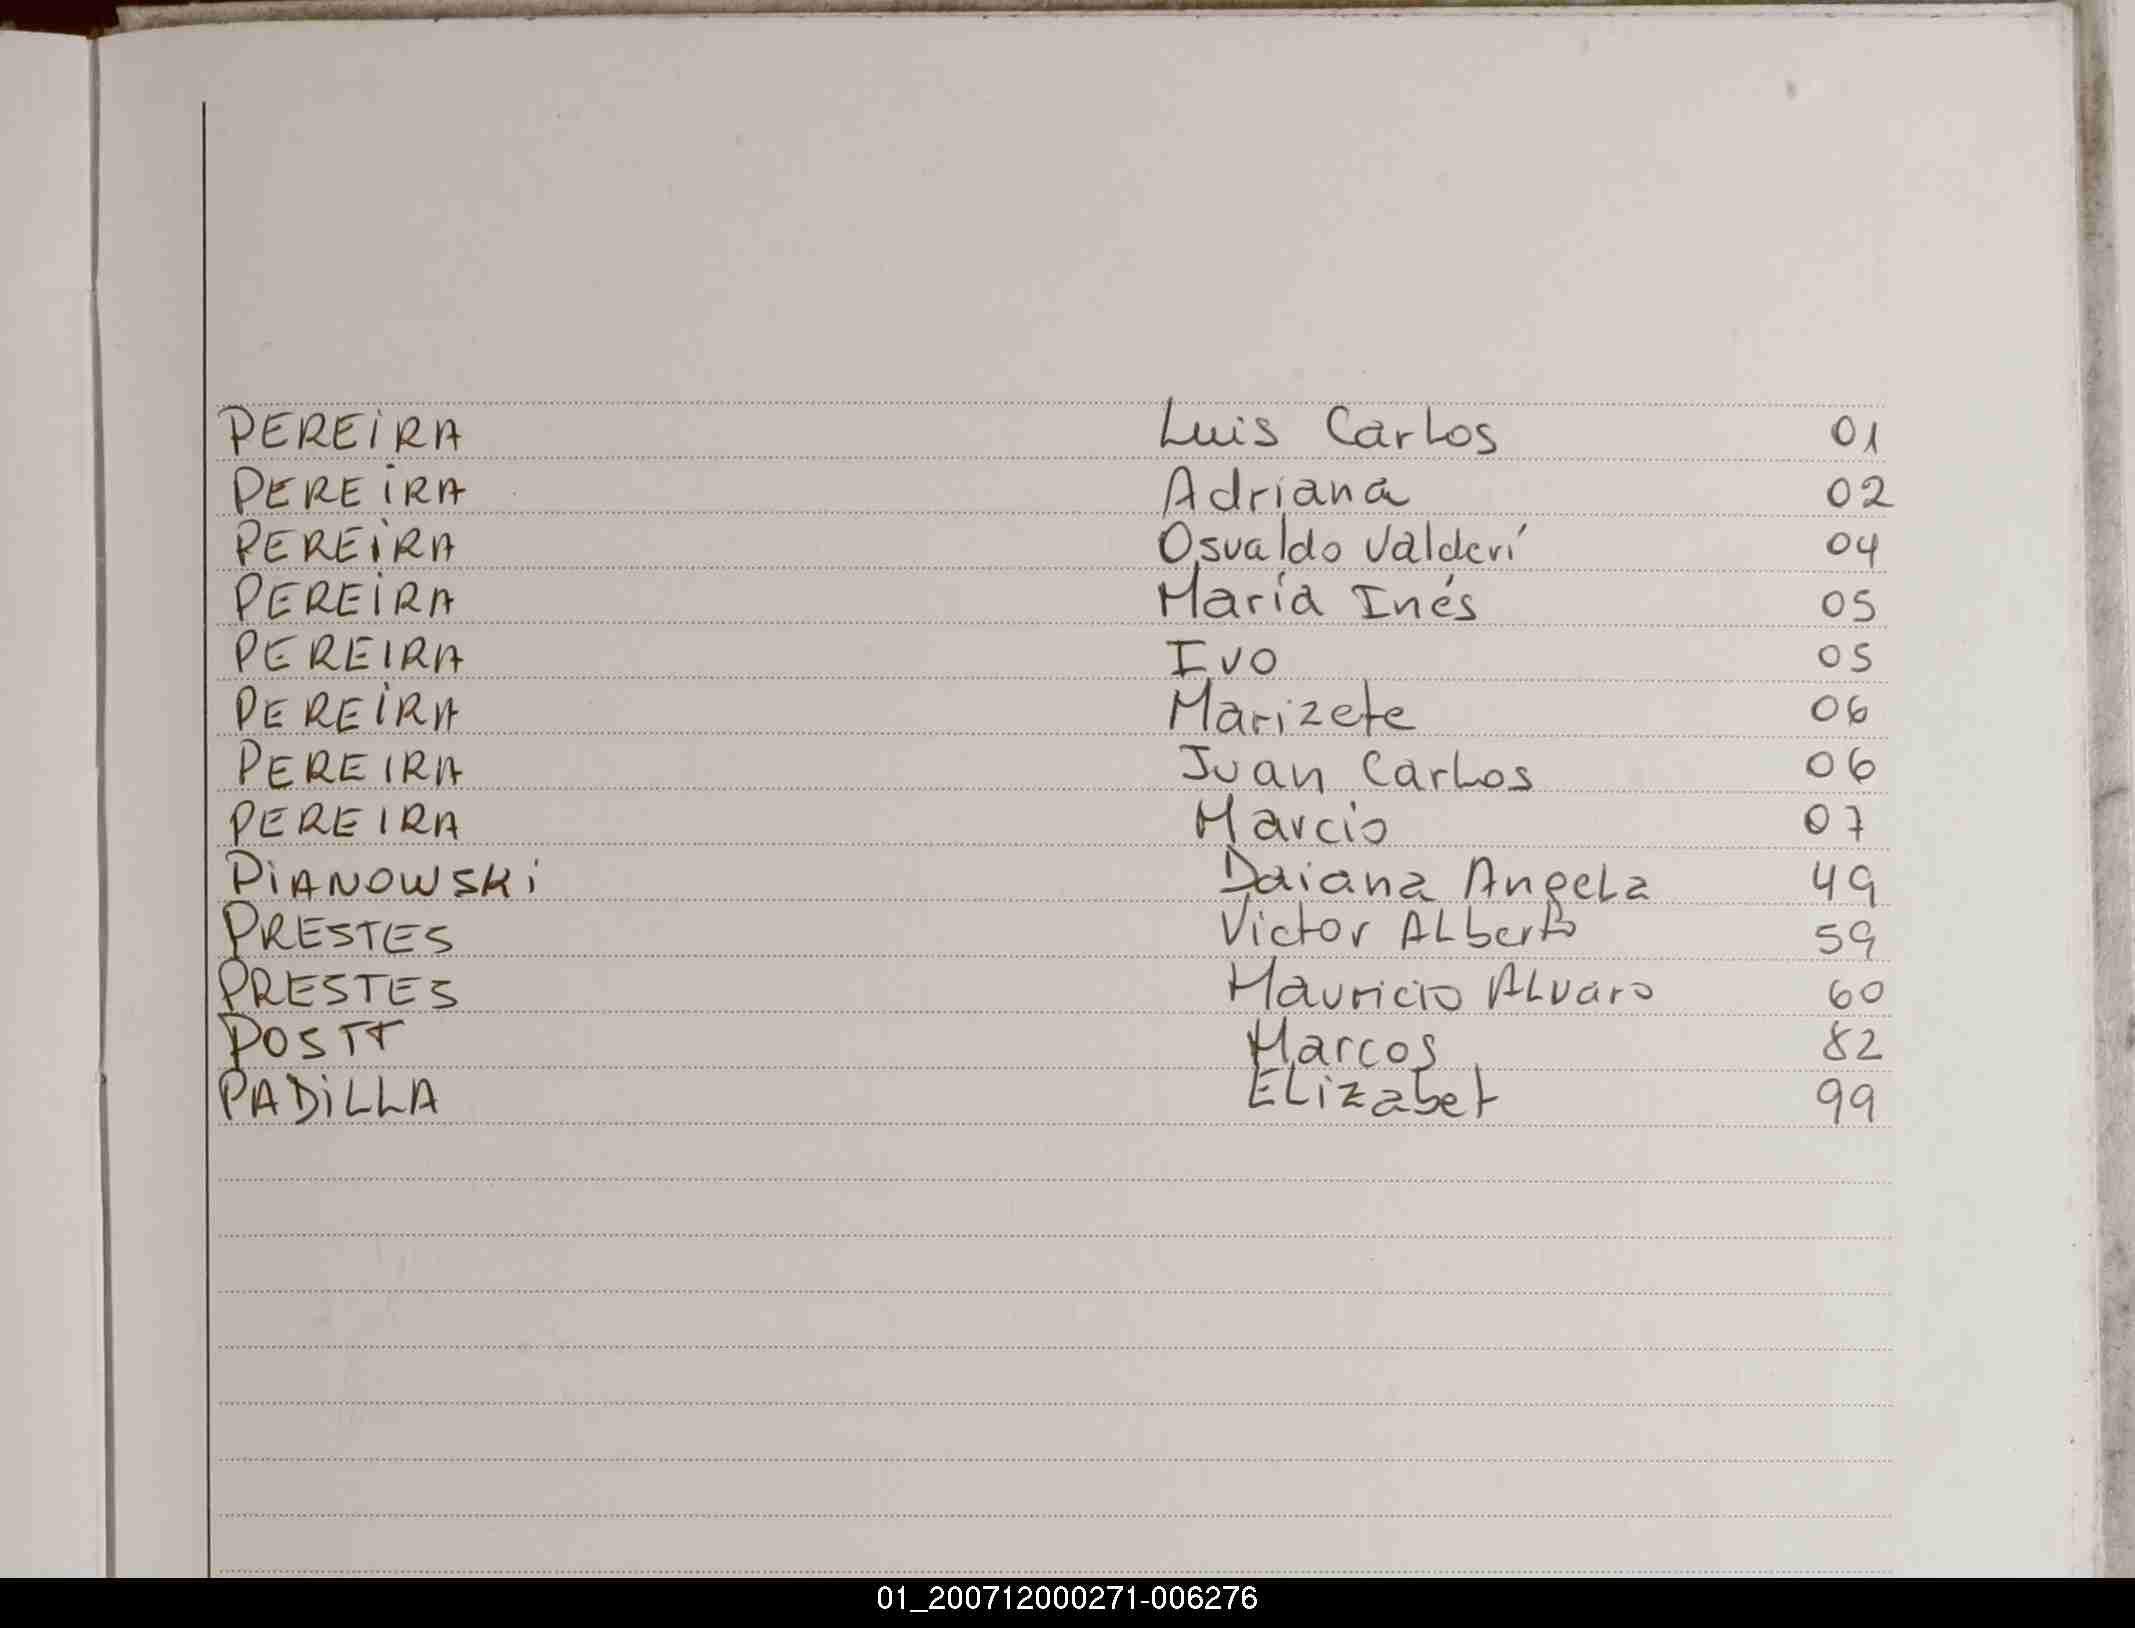 PEREIRA Luis Carlos 01
PEREIRA Adriana 02
PEREIRA Osvaldo Valderí 04
PEREIRA María Inés 05
PEREIRA Ivo 05
PEREIRA Marizete 06
PEREIRA Juan Carlos 06
PEREIRA Marcio 07
PIANOWSKI Daiana Angela 49
PRESTES Victor Alberto 59
PRESTES Mauricio Alvaro 60
POSTT Marcos 82
PADILLA Elizabet 99
01_200712000271-006276